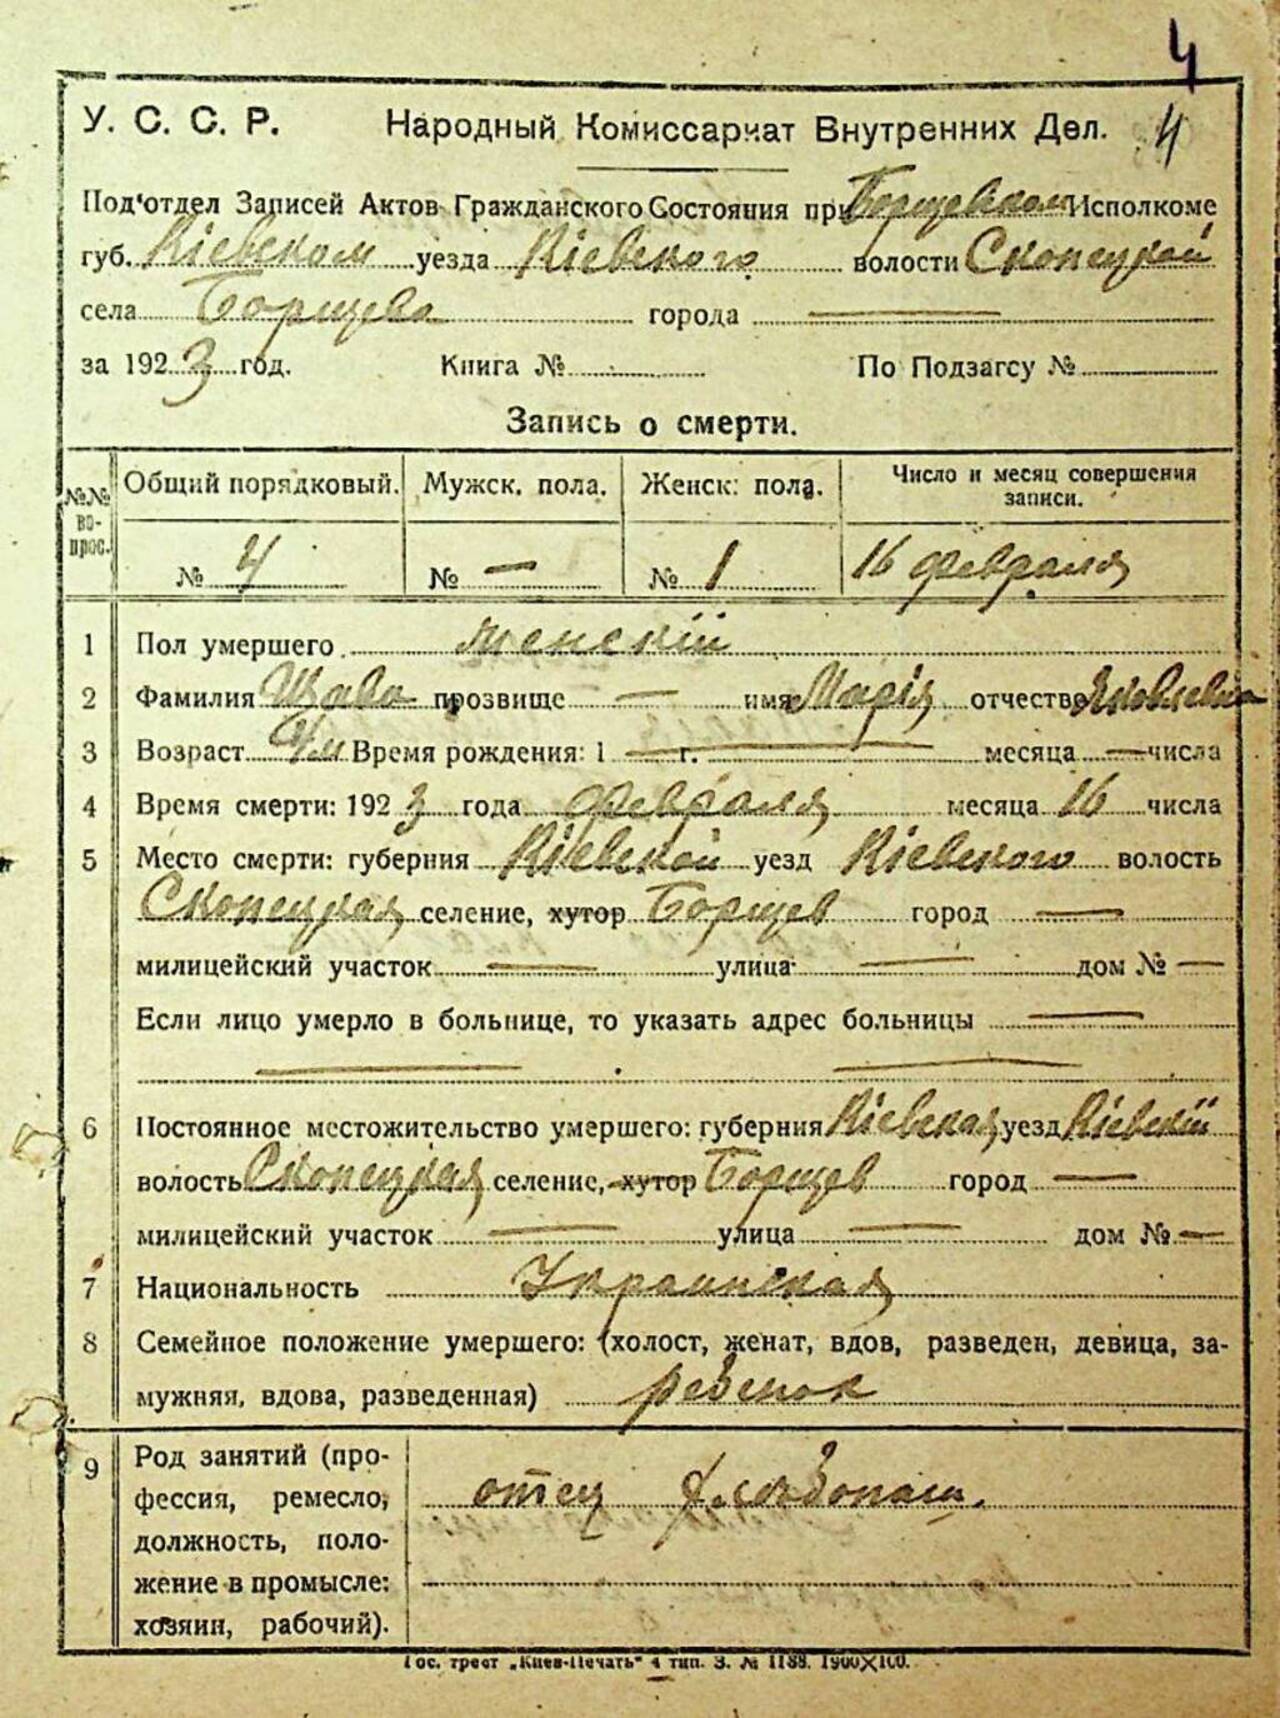 4
У. С. С. Р. Народный Комиссариат Внутренних Дел. 4
Под'отдел Записей Актов Гражданского Состояния при Борщевском Исполкоме
губ. Кіевском уезда Кіевского волости Скопецкой
села Борщева города —
за 1923 год. Книга № По Подзагсу №
Запись о смерти.
№№ во- прос. Общий порядковый. Мужск. пола. Женск. пола. Число и месяц совершения записи.
№ 4 № — № 1 16 февраля
1 Пол умершего женскій
2 Фамилия Щава прозвище — имя Марія отчество Яковлевна
3 Возраст 4 м Время рождения: 1 — г. — месяца — числа
4 Время смерти: 1923 года февраля месяца 16 числа
5 Место смерти: губерния Кіевской уезд Кіевского волость
Скопецкая селение, хутор Борщев город —
милицейский участок — улица — дом № —
Если лицо умерло в больнице, то указать адрес больницы —
— —
6 Постоянное местожительство умершего: губерния Кіевская уезд Кіевскій
волость Скопецкая селение, хутор Борщев город —
милицейский участок — улица — дом № —
7 Национальность Украинская
8 Семейное положение умершего: (холост, женат, вдов, разведен, девица, за-
мужняя, вдова, разведенная) ребенок
9 Род занятий (про-
фессия, ремесло, отец хлебопаш.
должность, поло-
жение в промысле:
хозяин, рабочий).
Гос. трест „Киев-Печать" 4 тип. З. № 1188. 1900X100.